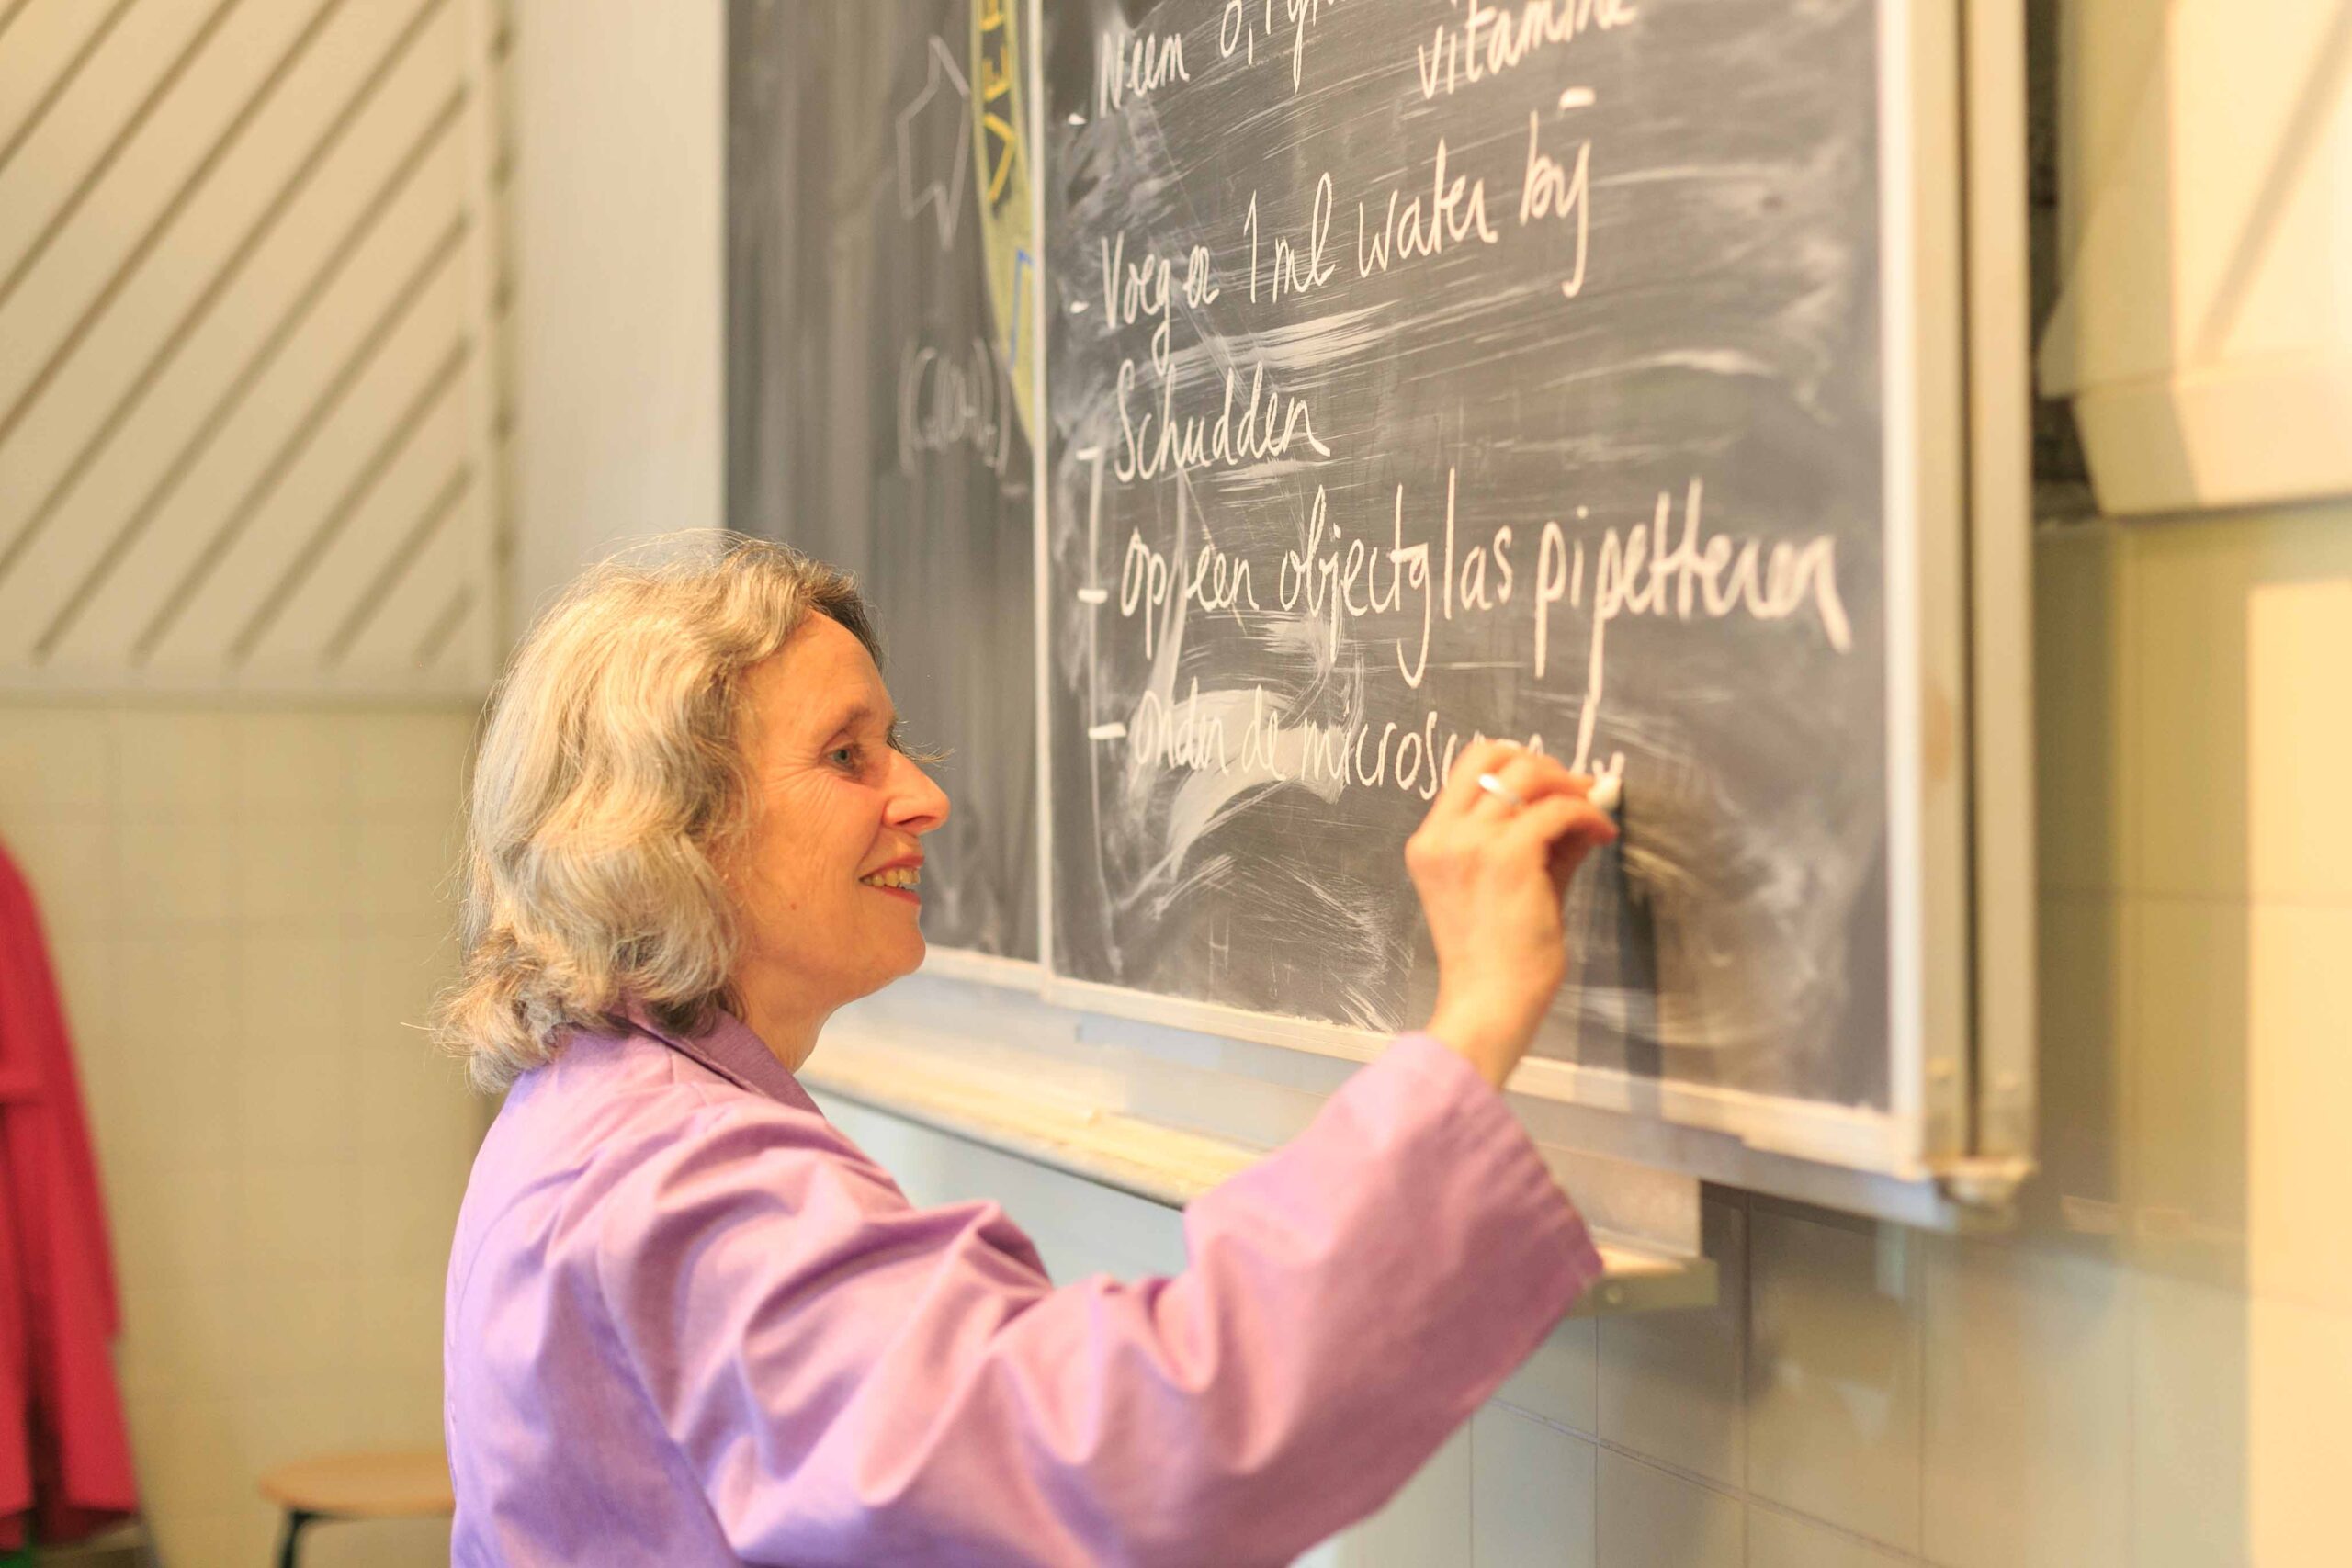 VEE
- Neem 0,1 g
vitamine
- Voeg er 1 ml water bij
- Schudden
- op een objectglas pipetteren
- onder de micros